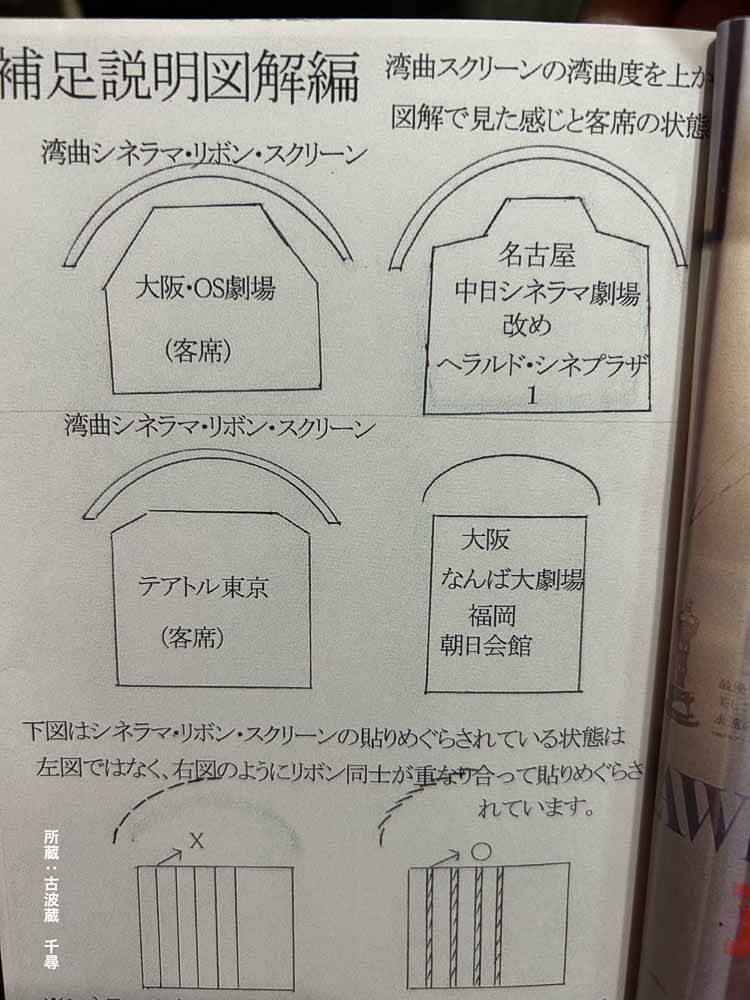 補足説明図解編
湾曲スクリーンの湾曲度を上か
図解で見た感じと客席の状態
湾曲シネラマ・リボン・スクリーン
大阪・OS劇場
(客席)
名古屋
中日シネラマ劇場
改め
ヘラルド・シネプラザ
1
湾曲シネラマ・リボン・スクリーン
テアトル東京
(客席)
大阪
なんば大劇場
福岡
朝日会館
下図はシネラマ・リボン・スクリーンの貼りめぐらされている状態は
左図ではなく、右図のようにリボン同士が重なり合って貼りめぐらさ
れています。
X
○
所蔵:古波蔵 千尋
AW